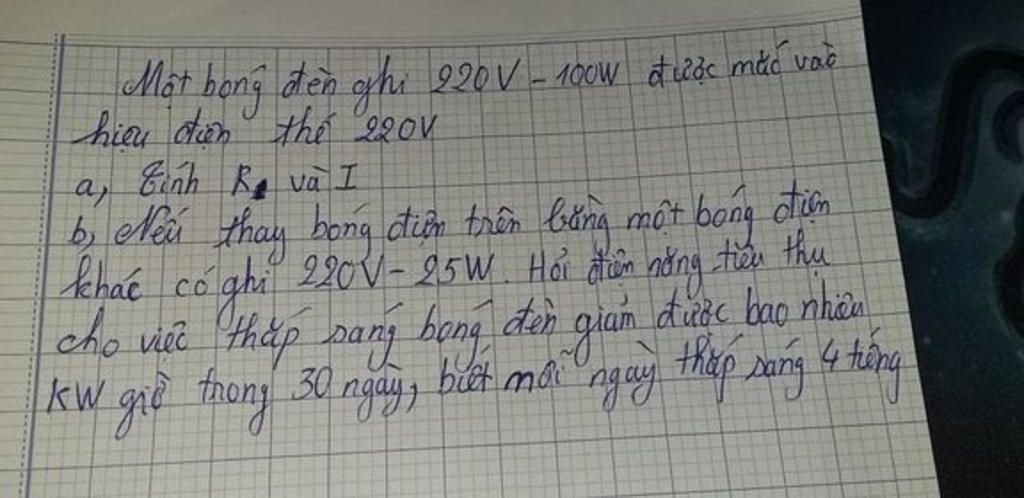 Một bóng đèn ghi 220V - 100W được mắc vào
hiệu điện thế 220V
a, Tính R và I
b, Nếu thay bóng điện trên bằng một bóng điện
khác có ghi 220V - 25W. Hỏi điện năng tiêu thụ
cho việc thắp sáng bóng đèn giảm được bao nhiêu
KW giờ trong 30 ngày, biết mỗi ngày thắp sáng 4 tiếng